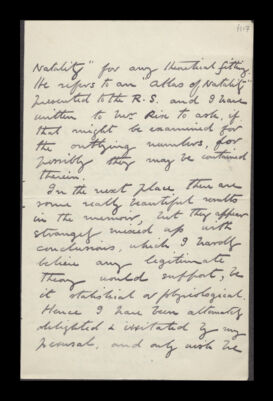 Natality" for any theoretical fitting.
He refers to an "Atlas of Natality"
presented to the R.S. and I have
written to Mr. Rix to ask, if
that might be examined for
the outlying numbers, for
possibly they may be contained
therein.
In the next place there are
some really beautiful results
in the memoir, but they appear
strangely mixed up with
conclusions, which I hardly
believe any legitimate
theory would support, be
it statistical or physiological.
Hence I have been alternately
delighted & irritated by my
perusal, and only wish we